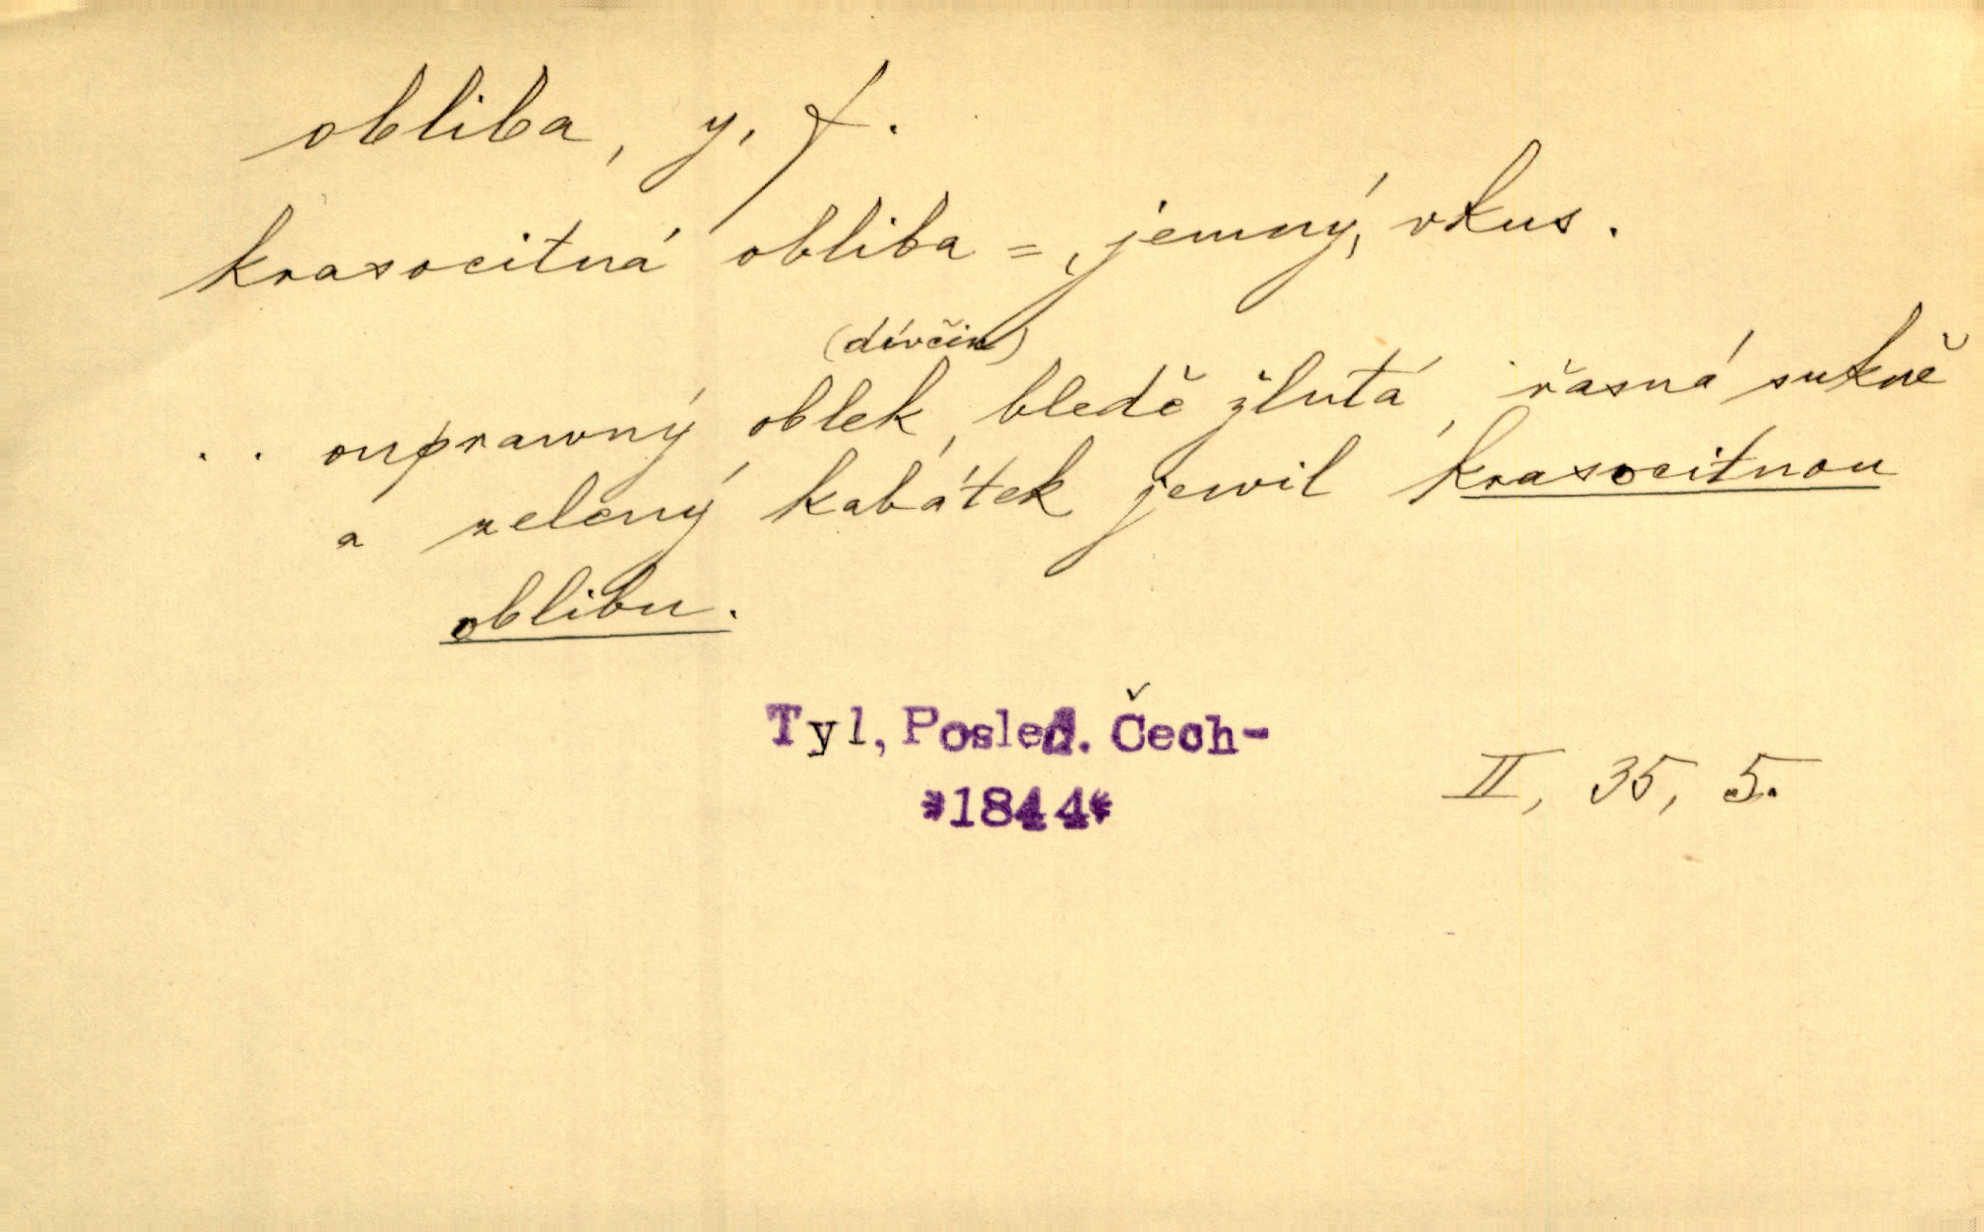 obliba, y, f.
krasocitná obliba = (jemný) vkus.
(dívčin)
.. ouprawný oblek, bledě žlutá, řasná sukně
a zelený kabátek jewil krasocitnou
oblibu.
Tyl, Posled. Čech-
*1844*
II, 35, 5.